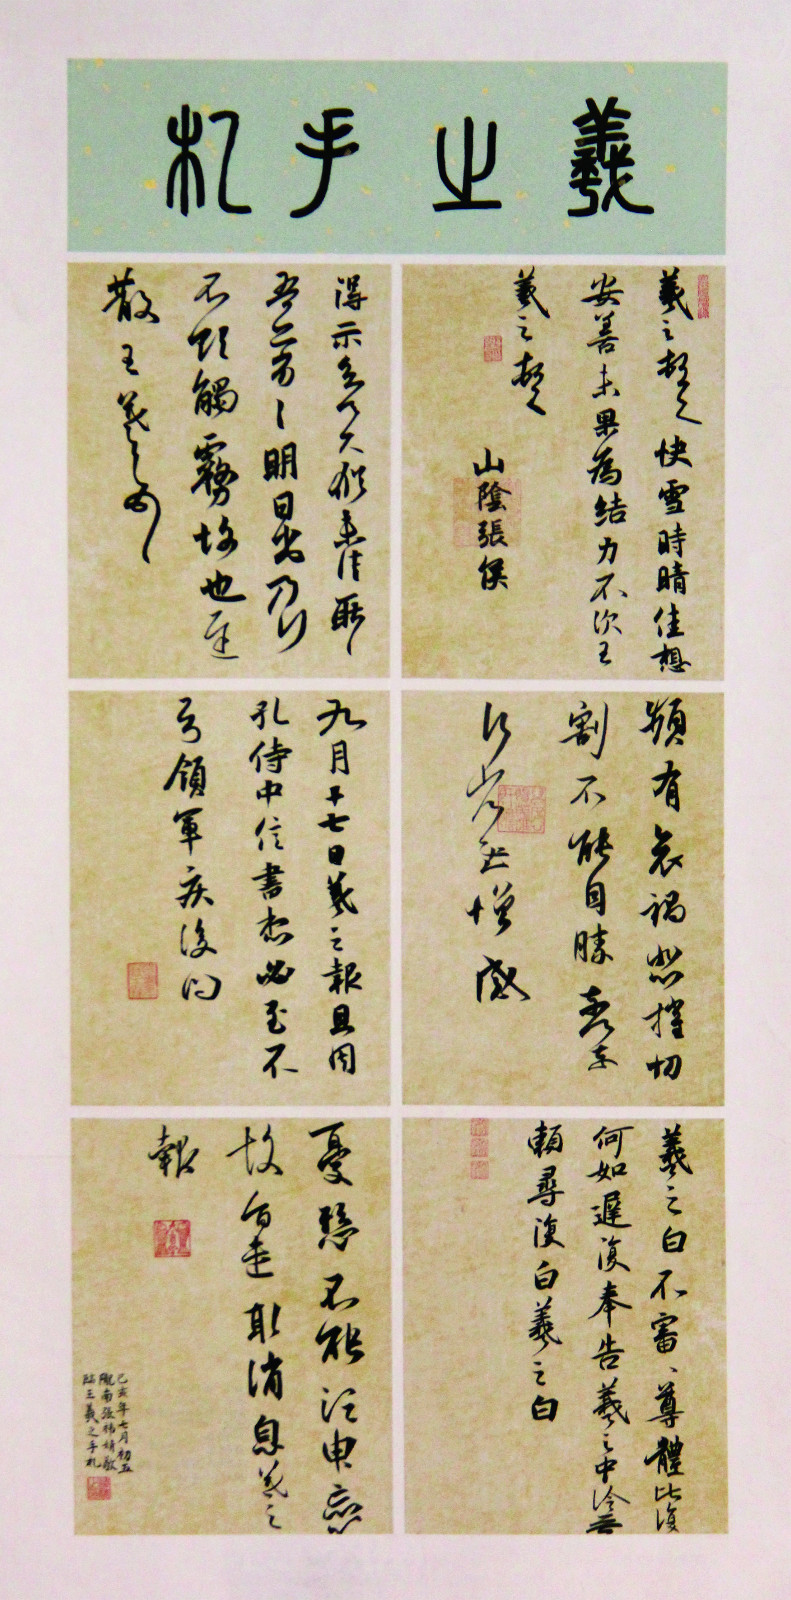 羲之手札
羲之頓首快雪時晴佳想
安善未果為結力不次王
羲之頓首
山陰張侯
得示知足下猶未佳耿耿
吾亦劣劣明日出乃行
不欲觸霧故也遲
散王羲之頓首
頻有哀禍悲摧切
割不能自勝奈何奈
何省慰增感
九月十七日羲之報且因
孔侍中信書想必至不
知領軍疾後問
羲之白不審、尊體比復
何如遲復奉告羲之中冷無
賴尋復白羲之白
憂懸不能須臾忘心
故旨遣取消息羲之
報
己亥年七月初五
隴南張婧敬
臨王羲之手札